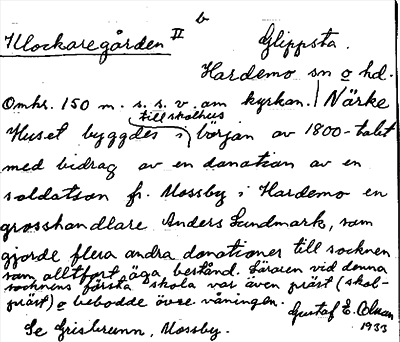 b
Klockaregården II Glippsta.
Hardemo sn o hd.
Omkr. 150 m. s. s. v. om kyrkan. Närke
till skolhus
Huset byggdes i början av 1800-talet
med bidrag av en donation av en
soldatson fr. Mossby i Hardemo en
grosshandlare Anders Sundmark, som
gjorde flera andra donationer till socknen
som alltfort äga bestånd. Läraren vid denna
socknens första skola var även präst (skol-
präst) o bebodde övre våningen.
Gustaf E. Olsson
Se Grisbrunn, Mossby. 1933